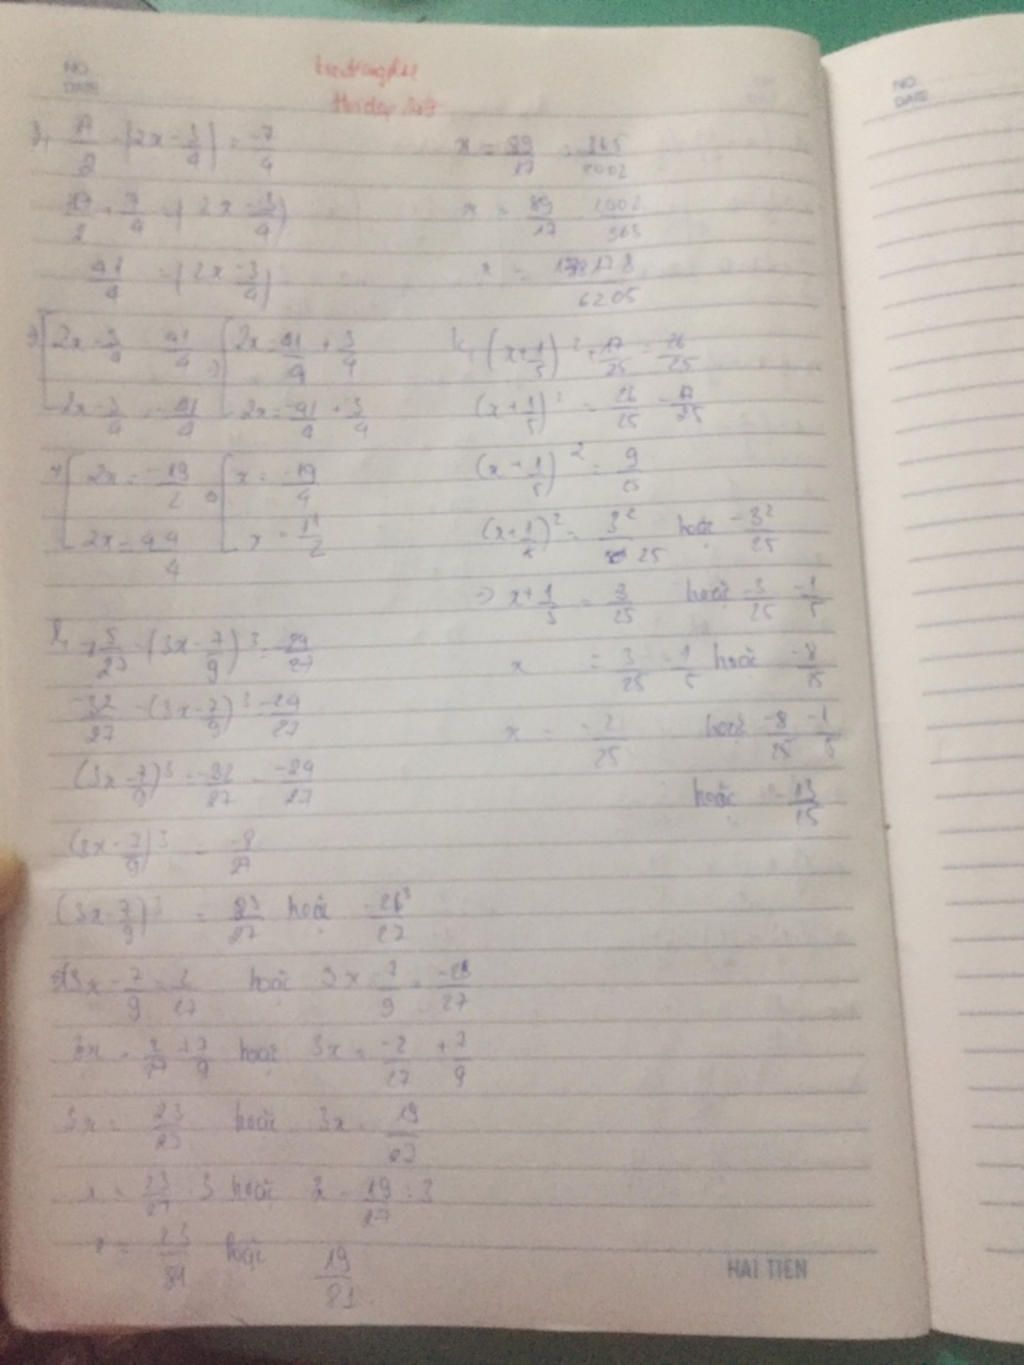 NO.
DATE
NO.
DATE
17/2 - |2x - 3/4| = -7/4
17/2 + 7/4 = |2x - 3/4|
41/4 = |2x - 3/4|
2x - 3/4 = 41/4 2x = 41/4 + 3/4
2x - 3/4 = -41/4 2x = -41/4 + 3/4
2x = -19/2 x = -19/4
2x = 44/4 x = 11/2
-(3x - 7/9)^3 = -24/27
-32/27 -(3x - 7/9)^3 = -24/27
(3x - 7/9)^3 = -32/27 - -24/27
(3x - 7/9)^3 = -8/27
(3x - 7/9)^3 = 2^3/27 hoặc
3x - 7/9 = 2/27 hoặc 3x - 7/9 =
3x = 2/27 + 7/9 hoặc 3x = -2/27 + 7/9
3x = 23/27 hoặc 3x = 19/27
x = 23/27 : 3 hoặc x = 19/27 : 3
x = 23/81 hoặc 19/81
x = 89/17 : 365/1002
x = 89/17 1002/365
x = /6205
k, (x + 1/5)^2 + 17/25 = 26/25
(x + 1/5)^2 = 26/25 - 17/25
(x + 1/5)^2 = 9/25
(x + 1/5)^2 = 3^2/25 hoặc -3^2/25
=> x + 1/5 = 3/25 hoặc -3/25 - 1/5
x = 3/25 - 1/5 hoặc -8/25
x = -2/25 hoặc -8/25 - 1/5
hoặc -13/25
HAI TIEN